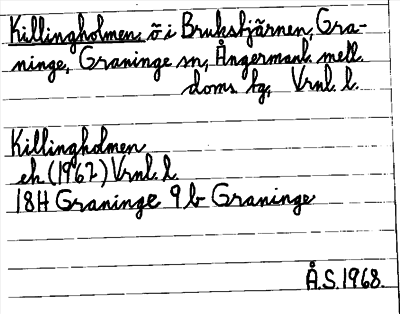 Killingholmen, ö i Bruksbjärnen, Gra-
ninge, Graninge sn, Ångermanl. mell.
doms fg, Vrnl. l.
Killingholmen
ek (1967) Vrnl. l.
18H Graninge 9 b Graninge
Å.S. 1968.